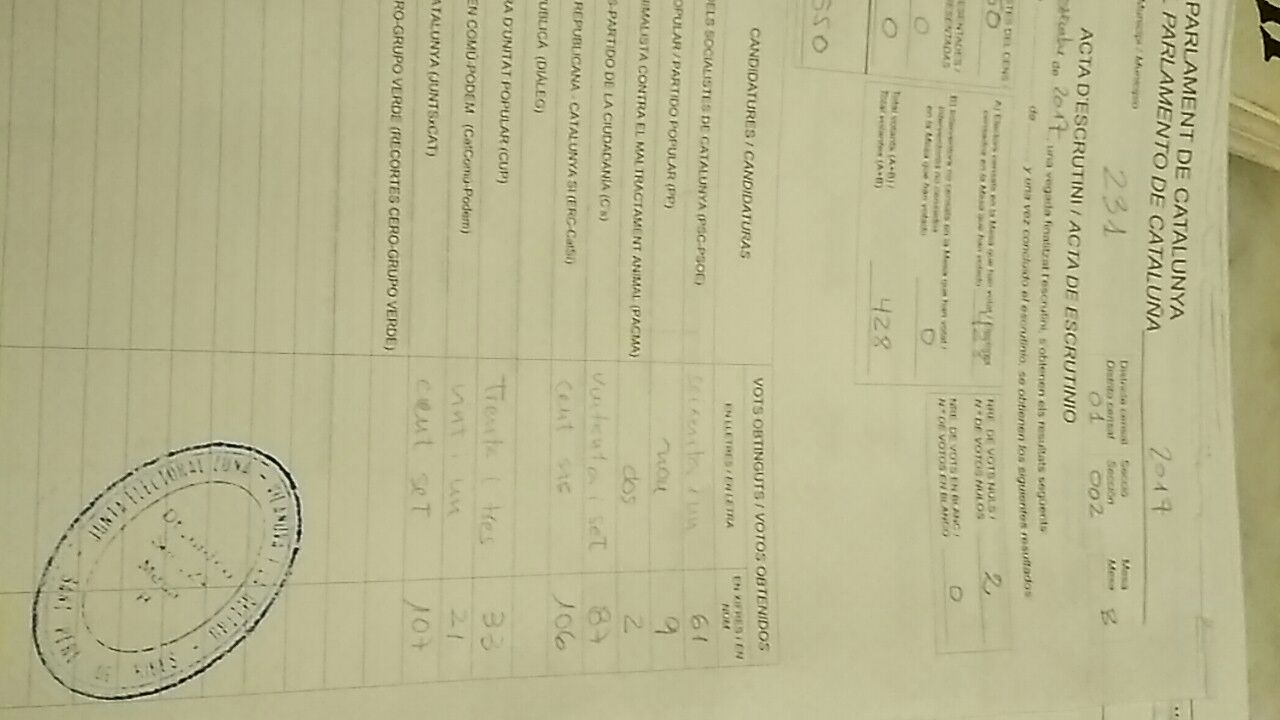 PARLAMENT DE CATALUNYA
PARLAMENTO DE CATALUÑA
2017
Municipi / Municipio
231
Districte censal
Distrito censal
01
Secció
Sección
002
Mesa
Mesa
B
ACTA D'ESCRUTINI / ACTA DE ESCRUTINIO
de 2017, una vegada finalitzat l'escrutini, s'obtenen els resultats següents
de y una vez concluido el escrutinio, se obtienen los siguientes resultados
A) Electors censats en la Mesa que han votat /
censados en la Mesa que han votado
428
NRE. DE VOTS NULS /
N.º DE VOTOS NULOS
2
0
0
B) Interventors no censats en la Mesa que han votat /
Interventores no censados
en la Mesa que han votado
0
NRE. DE VOTS EN BLANC /
N.º DE VOTOS EN BLANCO
0
0
Total votants (A+B) /
Total votantes (A+B)
428
550
CANDIDATURES / CANDIDATURAS
VOTS OBTINGUTS / VOTOS OBTENIDOS
EN LLETRES / EN LETRA
EN XIFRES / EN NÚM
ELS SOCIALISTES DE CATALUNYA (PSC-PSOE) seixanta / un 61
OPULAR / PARTIDO POPULAR (PP) nou 9
NIMALISTA CONTRA EL MALTRACTAMENT ANIMAL (PACMA) dos 2
S-PARTIDO DE LA CIUDADANÍA (C's) vuitanta i set 87
REPUBLICANA - CATALUNYA SÍ (ERC-CatSí) cent sis 106
PÚBLICA (DIÀLEG)
RA D'UNITAT POPULAR (CUP) Trenta i tres 33
EN COMÚ-PODEM (CatComú-Podem) vint i un 21
ATALUNYA (JUNTSxCAT) cent set 107
RO-GRUPO VERDE (RECORTES CERO-GRUPO VERDE)
JUNTA ELECTORAL ZONA - VILANOVA I LA GELTRÚ
SANT PERE DE RIBES